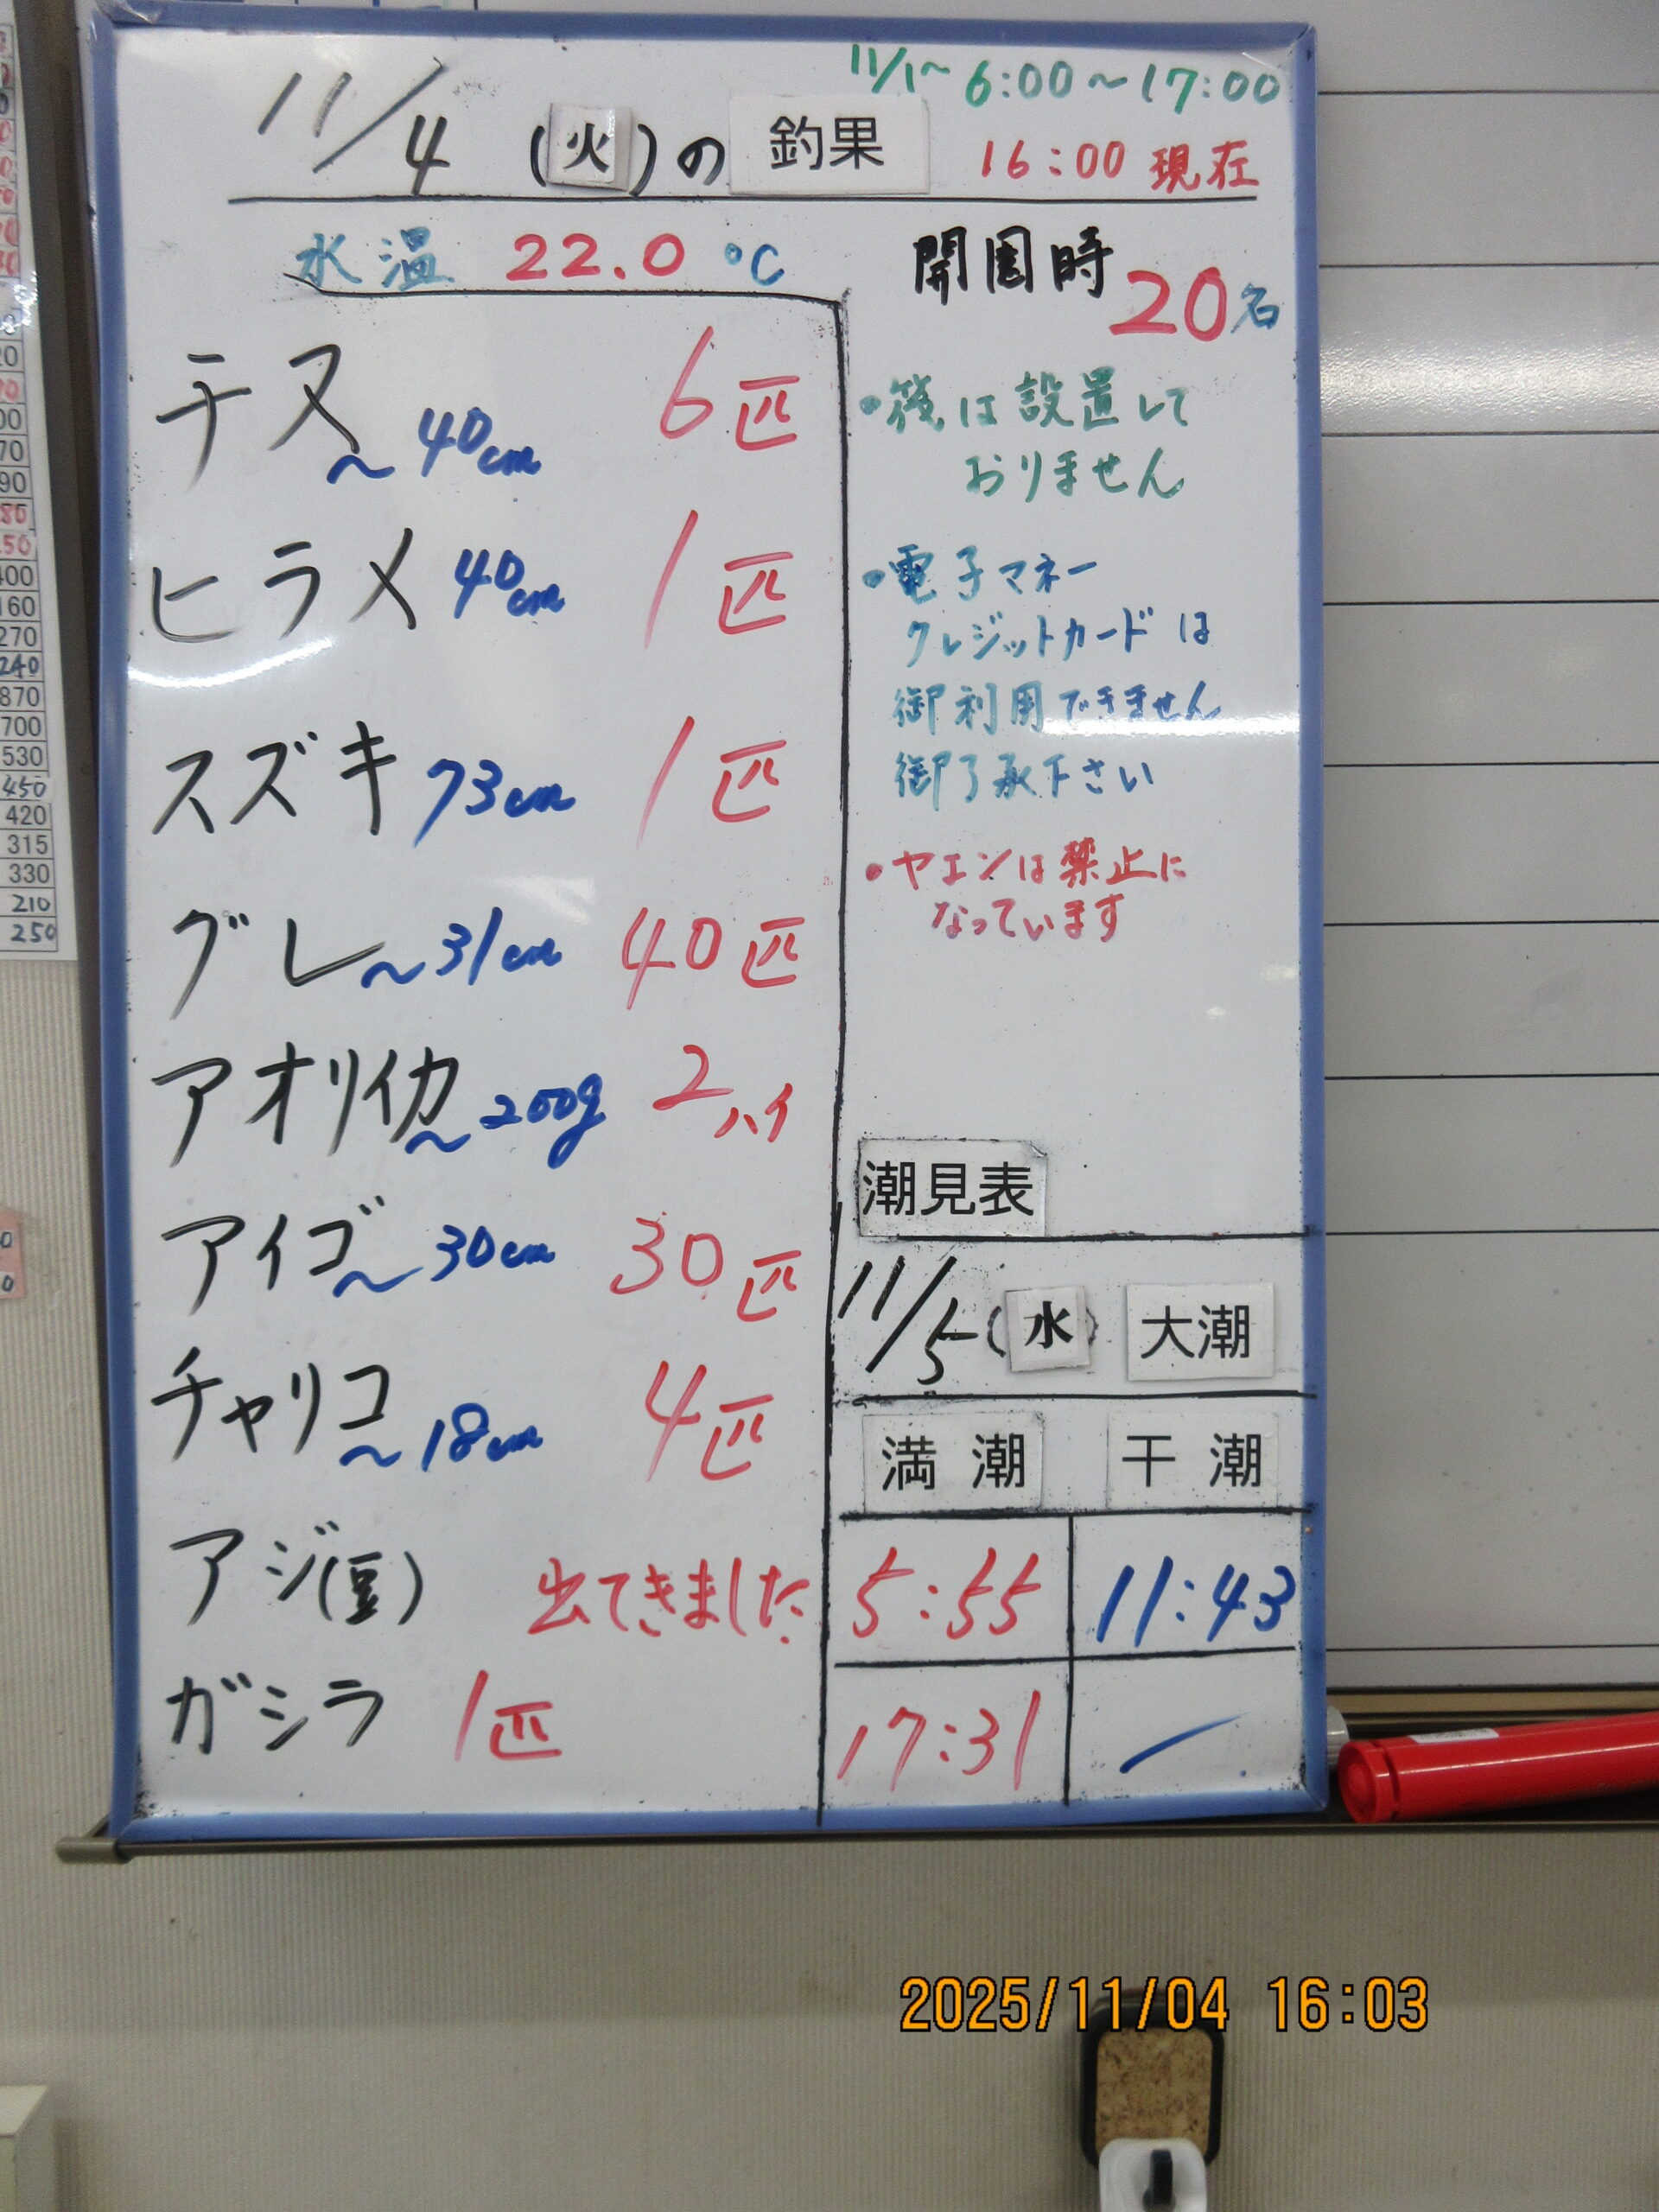 11/1~ 6:00~17:00
11/4 (火)の 釣果 16:00 現在
水温 22.0 ℃
開園時 20名
チヌ ~40cm 6匹
ヒラメ 40cm 1匹
スズキ 73cm 1匹
グレ ~31cm 40匹
アオリイカ ~200g 2ハイ
アイゴ ~30cm 30匹
チャリコ ~18cm 4匹
アジ(豆) 出てきました
ガシラ 1匹
・筏は設置して
おりません
・電子マネー
クレジットカードは
御利用できません
御了承下さい
・ヤエンは禁止に
なっています
潮見表
11/5 (水) 大潮
満潮 干潮
5:55 11:43
17:31 /
870
700
530
450
420
315
330
210
250
2025/11/04 16:03